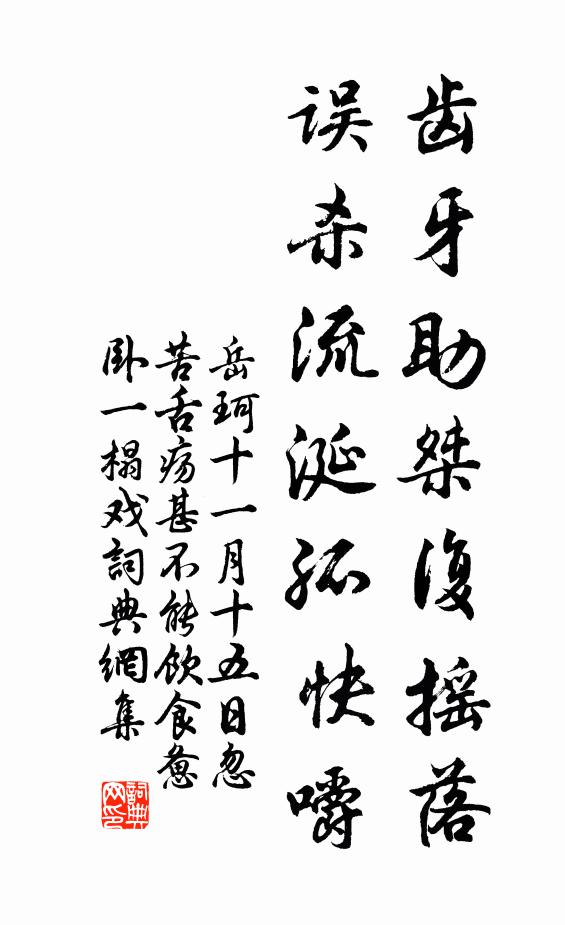 齿牙助桀復摇落
误杀流涎孤快嚼
岳珂十一月十五日忽
苦舌疡甚不能饮食惫
卧一榻戏詞典網集
詞典网印